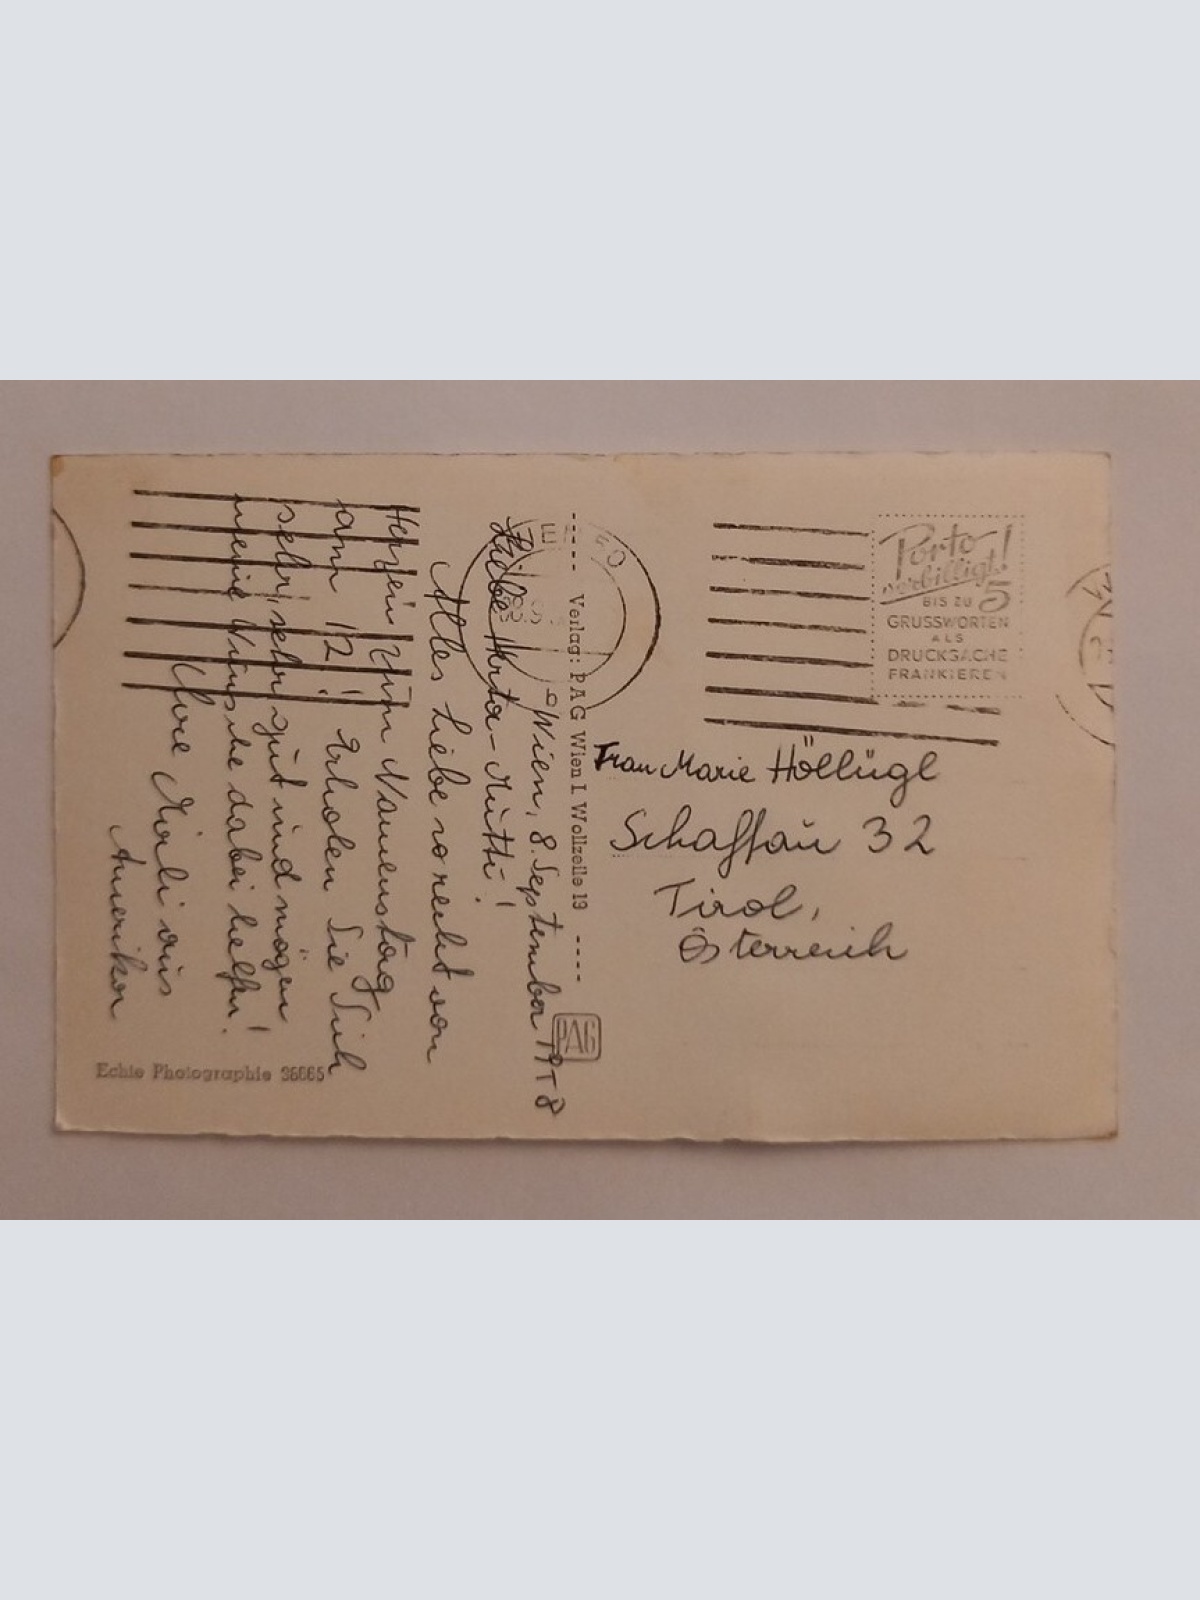 Wien, 8. September 19
Liebe Herta-Mutti!
Alles Liebe so recht von
Herzen zum Namenstag
am 12! Erholen Sie Sich
sehr, sehr gut und mögen
meine Wünsche dabei helfen!
Ihre aus
Amerika
Echte Photographie 36665
Verlag: PAG Wien I. Wollzeile 19
PAG
Porto
verbilligt!
BIS ZU 5
GRUSSWORTEN
ALS
DRUCKSACHE
FRANKIEREN
Frau Marie Höllügl
Schaffau 32
Tirol,
Österreich